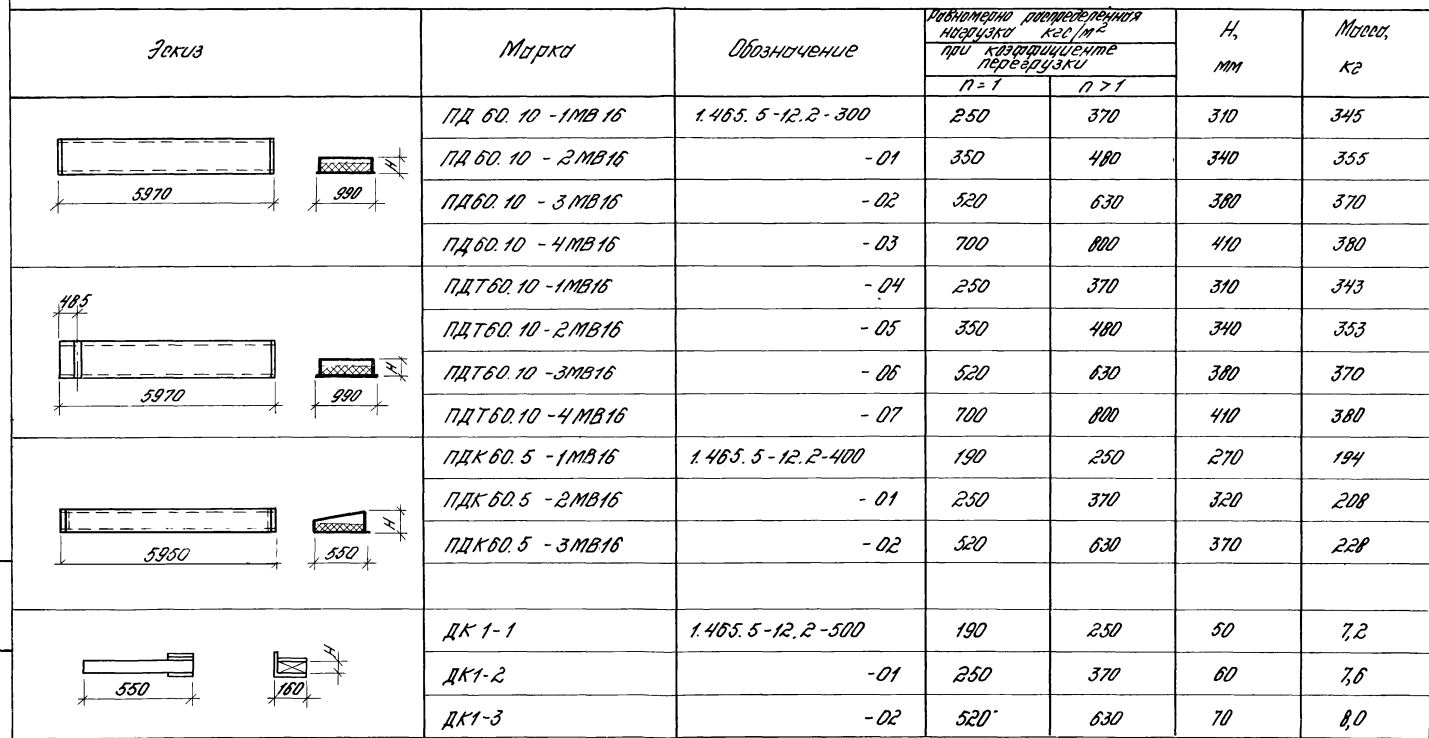 Эскиз Марка Обозначение Равномерно распределенная нагрузка кгс/м² H, мм Масса, кг
при коэффициенте перегрузки
n = 1 n > 1
ПД 60.10 - 1МВ 16 1.465.5-12.2-300 250 370 310 345
ПД 60.10 - 2МВ16 -01 350 480 340 355
ПД60.10 - 3МВ16 -02 520 630 380 370
ПД60.10 - 4МВ16 -03 700 800 410 380
5970 990 H
ПДТ60.10 -1МВ16 -04 250 370 310 343
ПДТ60.10 -2МВ16 -05 350 480 340 353
ПДТ60.10 -3МВ16 -06 520 630 380 370
ПДТ60.10 -4МВ16 -07 700 800 410 380
485 5970 990 H
ПДК60.5 -1МВ16 1.465.5-12.2-400 190 250 270 194
ПДК60.5 -2МВ16 -01 250 370 320 208
ПДК60.5 -3МВ16 -02 520 630 370 228
5950 550 H
ДК 1-1 1.465.5-12.2-500 190 250 50 7,2
ДК1-2 -01 250 370 60 7,6
ДК1-3 -02 520 630 70 8,0
550 160 H